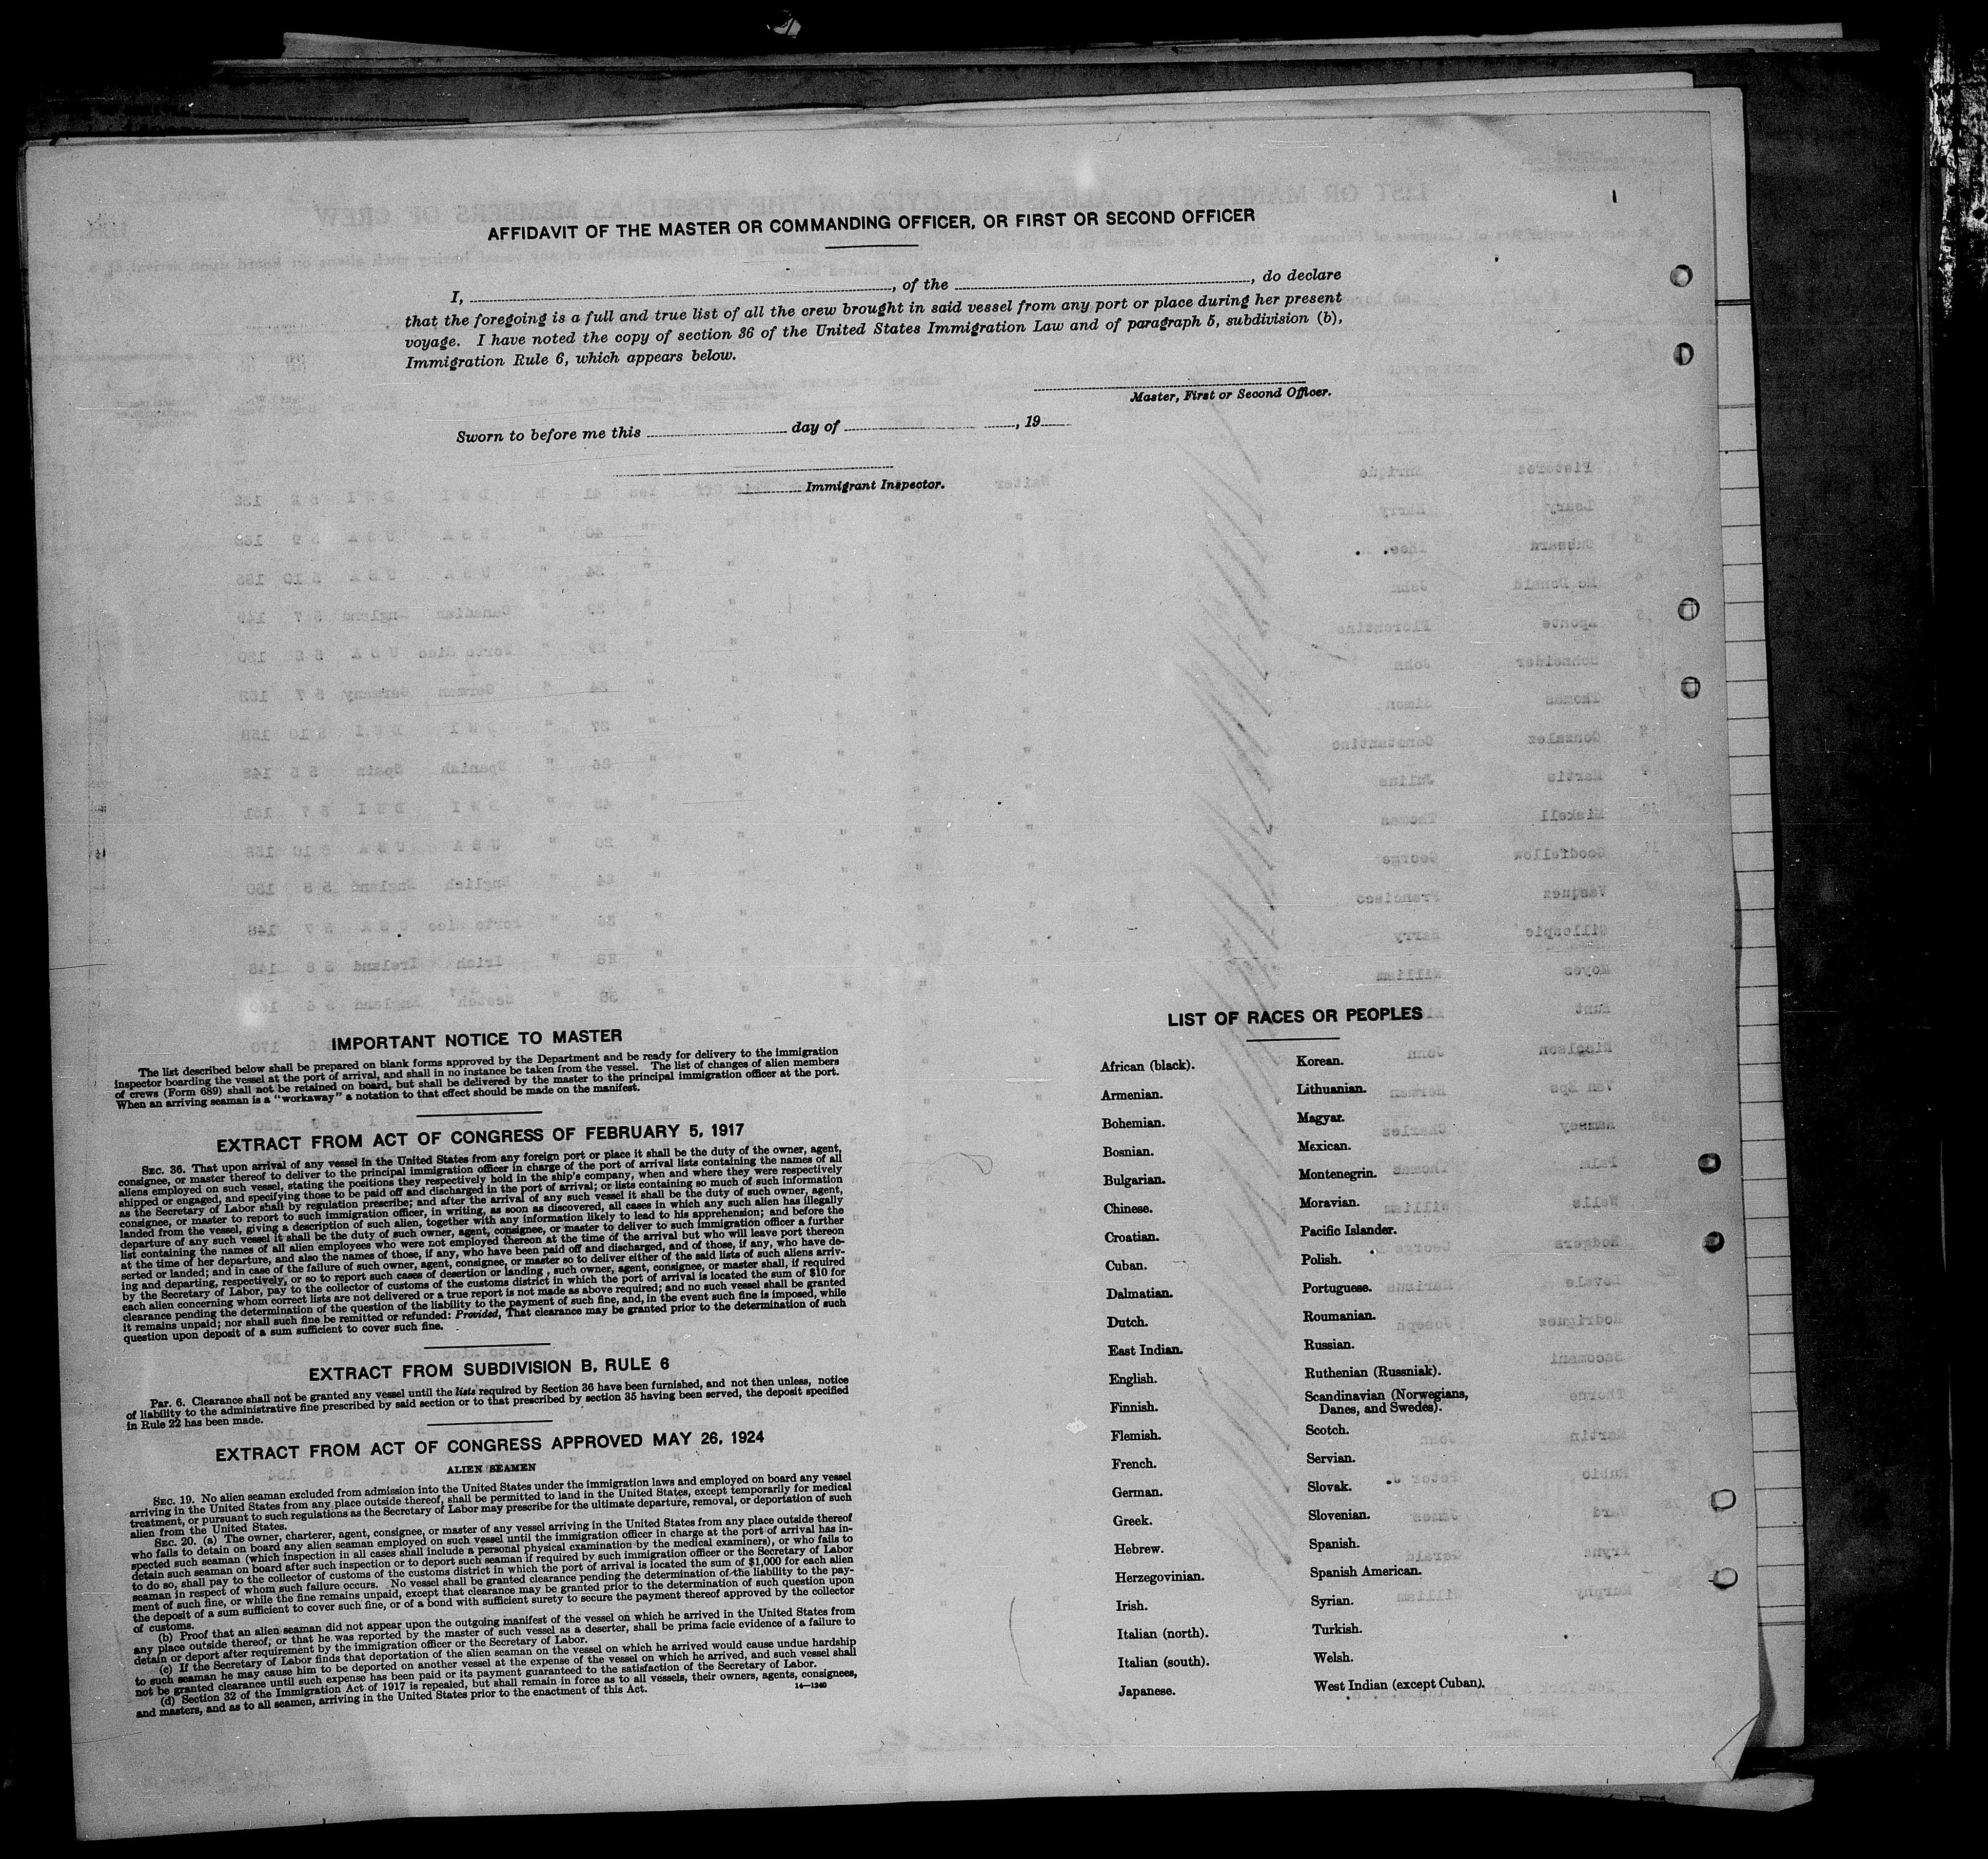 AFFIDAVIT OF THE MASTER OR COMMANDING OFFICER, OR FIRST OR SECOND OFFICER
I, , of the , do declare
that the foregoing is a full and true list of all the crew brought in said vessel from any port or place during her present
voyage. I have noted the copy of section 36 of the United States Immigration Law and of paragraph 5, subdivision (b),
Immigration Rule 6, which appears below.
Master, First or Second Officer.
Sworn to before me this day of , 19
Immigrant Inspector.
IMPORTANT NOTICE TO MASTER
The list described below shall be prepared on blank forms approved by the Department and be ready for delivery to the immigration
inspector boarding the vessel at the port of arrival, and shall in no instance be taken from the vessel. The list of changes of alien members
of crews (Form 689) shall not be retained on board, but shall be delivered by the master to the principal immigration officer at the port.
When an arriving seaman is a "workaway" a notation to that effect should be made on the manifest.
EXTRACT FROM ACT OF CONGRESS OF FEBRUARY 5, 1917
SEC. 36. That upon arrival of any vessel in the United States from any foreign port or place it shall be the duty of the owner, agent,
consignee, or master thereof to deliver to the principal immigration officer in charge of the port of arrival lists containing the names of all
aliens employed on such vessel, stating the positions they respectively hold in the ship's company, when and where they were respectively
shipped or engaged, and specifying those to be paid off and discharged in the port of arrival; or lists containing so much of such information
as the Secretary of Labor shall by regulation prescribe; and after the arrival of any such vessel it shall be the duty of such owner, agent,
consignee, or master to report to such immigration officer, in writing, as soon as discovered, all cases in which any such alien has illegally
landed from the vessel, giving a description of such alien, together with any information likely to lead to his apprehension; and before the
departure of any such vessel it shall be the duty of such owner, agent, consignee, or master to deliver to such immigration officer a further
list containing the names of all alien employees who were not employed thereon at the time of the arrival but who will leave port thereon
at the time of her departure, and also the names of those, if any, who have been paid off and discharged, and of those, if any, who have de-
serted or landed; and in case of the failure of such owner, agent, consignee, or master so to deliver either of the said lists of such aliens arriv-
ing and departing, respectively, or so to report such cases of desertion or landing , such owner, agent, consignee, or master shall, if required
by the Secretary of Labor, pay to the collector of customs of the customs district in which the port of arrival is located the sum of $10 for
each alien concerning whom correct lists are not delivered or a true report is not made as above required; and no such vessel shall be granted
clearance pending the determination of the question of the liability to the payment of such fine, and, in the event such fine is imposed, while
it remains unpaid; nor shall such fine be remitted or refunded: Provided, That clearance may be granted prior to the determination of such
question upon deposit of a sum sufficient to cover such fine.
EXTRACT FROM SUBDIVISION B, RULE 6
Par. 6. Clearance shall not be granted any vessel until the lists required by Section 36 have been furnished, and not then unless, notice
of liability to the administrative fine prescribed by said section or to that prescribed by section 35 having been served, the deposit specified
in Rule 22 has been made.
EXTRACT FROM ACT OF CONGRESS APPROVED MAY 26, 1924
ALIEN SEAMEN
SEC. 19. No alien seaman excluded from admission into the United States under the immigration laws and employed on board any vessel
arriving in the United States from any place outside thereof, shall be permitted to land in the United States, except temporarily for medical
treatment, or pursuant to such regulations as the Secretary of Labor may prescribe for the ultimate departure, removal, or deportation of such
alien from the United States.
SEC. 20. (a) The owner, charterer, agent, consignee, or master of any vessel arriving in the United States from any place outside thereof
who fails to detain on board any alien seaman employed on such vessel until the immigration officer in charge at the port of arrival has in-
spected such seaman (which inspection in all cases shall include a personal physical examination by the medical examiners), or who fails to
detain such seaman on board after such inspection or to deport such seaman if required by such immigration officer or the Secretary of Labor
to do so, shall pay to the collector of customs of the customs district in which the port of arrival is located the sum of $1,000 for each alien
seaman in respect of whom such failure occurs. No vessel shall be granted clearance pending the determination of the liability to the pay-
ment of such fine, or while the fine remains unpaid, except that clearance may be granted prior to the determination of such question upon
the deposit of a sum sufficient to cover such fine, or of a bond with sufficient surety to secure the payment thereof approved by the collector
of customs.
(b) Proof that an alien seaman did not appear upon the outgoing manifest of the vessel on which he arrived in the United States from
any place outside thereof, or that he was reported by the master of such vessel as a deserter, shall be prima facie evidence of a failure to
detain or deport after requirement by the immigration officer or the Secretary of Labor.
(c) If the Secretary of Labor finds that deportation of the alien seaman on the vessel on which he arrived would cause undue hardship
to such seaman he may cause him to be deported on another vessel at the expense of the vessel on which he arrived, and such vessel shall
not be granted clearance until such expense has been paid or its payment guaranteed to the satisfaction of the Secretary of Labor.
(d) Section 32 of the Immigration Act of 1917 is repealed, but shall remain in force as to all vessels, their owners, agents, consignees,
and masters, and as to all seamen, arriving in the United States prior to the enactment of this Act.
14—1240
LIST OF RACES OR PEOPLES
African (black).
Armenian.
Bohemian.
Bosnian.
Bulgarian.
Chinese.
Croatian.
Cuban.
Dalmatian.
Dutch.
East Indian.
English.
Finnish.
Flemish.
French.
German.
Greek.
Hebrew.
Herzegovinian.
Irish.
Italian (north).
Italian (south).
Japanese.
Korean.
Lithuanian.
Magyar.
Mexican.
Montenegrin.
Moravian.
Pacific Islander.
Polish.
Portuguese.
Roumanian.
Russian.
Ruthenian (Russniak).
Scandinavian (Norwegians,
Danes, and Swedes).
Scotch.
Servian.
Slovak.
Slovenian.
Spanish.
Spanish American.
Syrian.
Turkish.
Welsh.
West Indian (except Cuban).